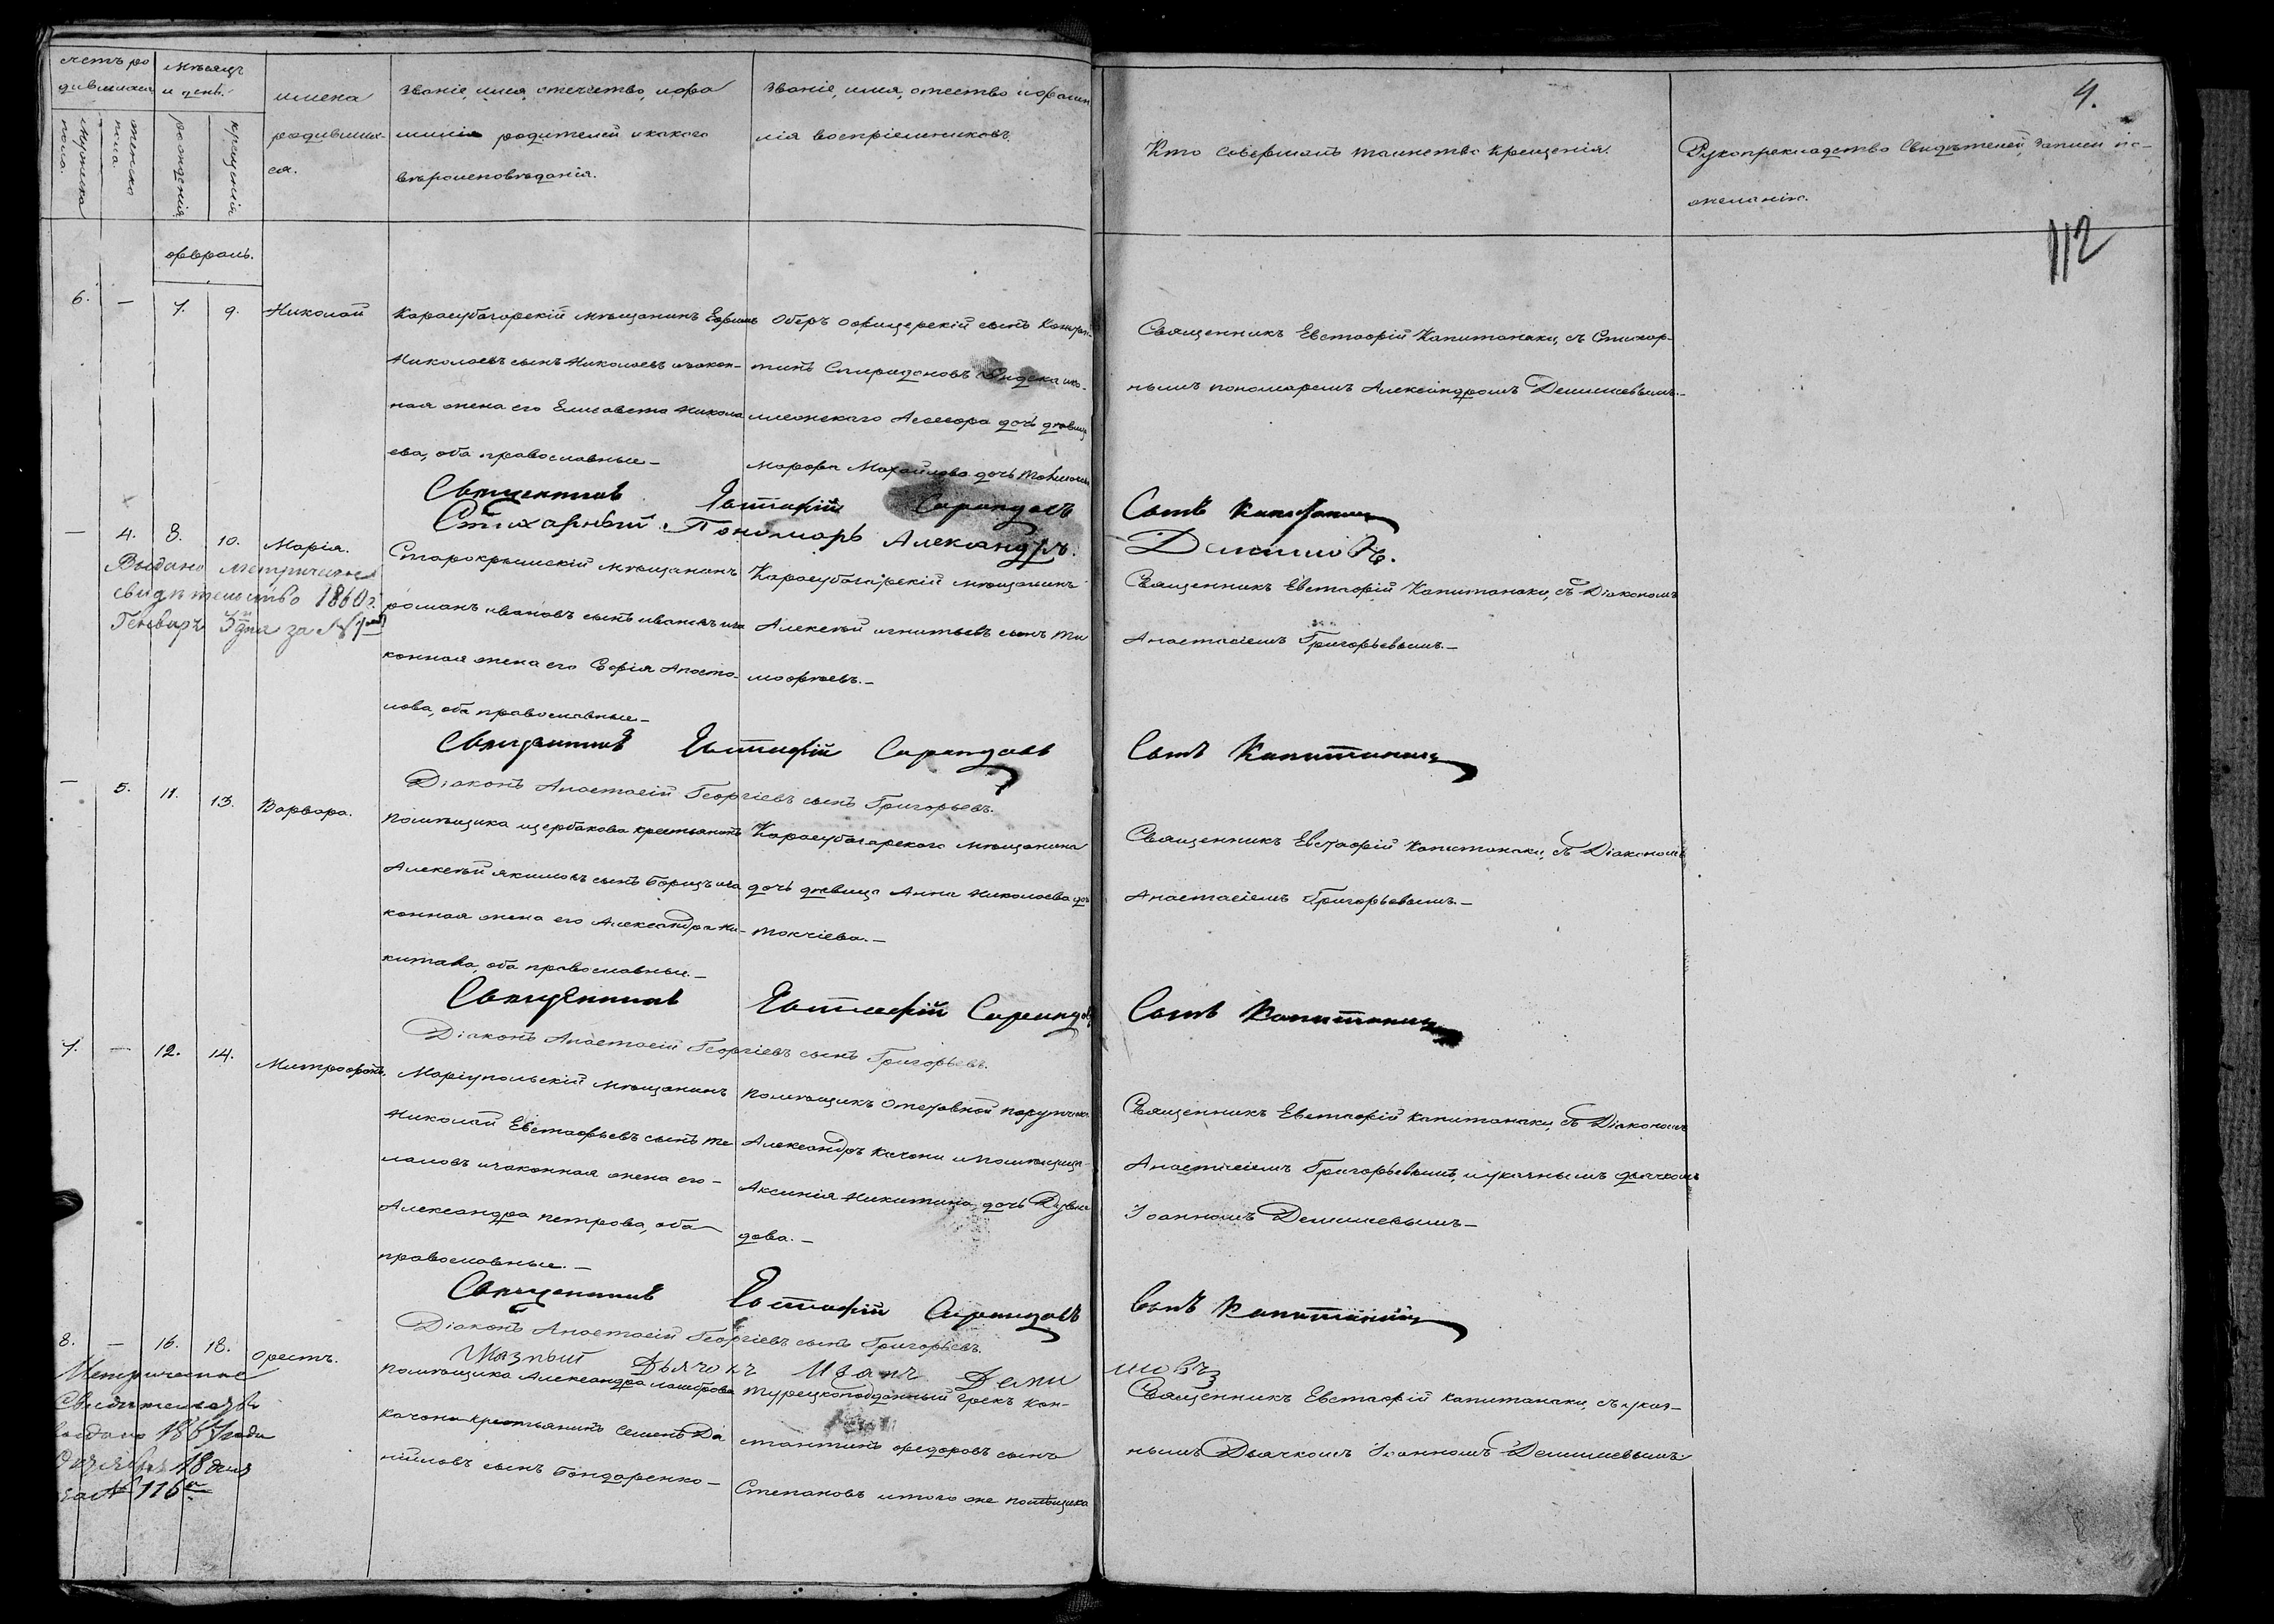 счетъ ро
дившихся
мѣсяцъ
и день.
мужеска
пола.
женска
пола.
рожденія
крещенія
имена
родивших-
ся.
Званіе, имя, отечество, и фа
милія родителей и какого
вѣроисповѣданія.
Званіе, имя, отество и фамил
лія воспріемниковъ.
Кто совершалъ таинство крещенія.
Рукоприкладство свидѣтелей записи по-
желанію.
4.
112
февраль.
6. — 7. 9. Николай
Карасубазарскій мѣщанинъ Ефимъ
Николаевъ сынъ Николаевъ и закон-
ная жена его Елисавета Никола
ева, оба православные —
Оберъ офицерскій сынъ Констан-
тинъ Спиридоновъ и ко-
ллежскаго Асесора дочь дѣвица
Марфа Михайлова дочь
Священникъ Евстафій Капитанаки, съ Стихар-
нымъ пономаремъ Александромъ Демишевымъ. —
Священникъ Евстафій Сарандовъ Сынъ Капитанаки
Стихарный Пономарь Александръ Демишовъ.
— 4. 8. 10. Марія.
Выдано метрическое
свидѣтельство 1860 г.
Генваря 3 дня за №
Старокрымскій мѣщанинъ
Романъ ивановъ сынъ ивановъ и за
конная жена его Софія Апосто-
лова, оба православные —
Карасубазарскій мѣщанинъ
Алексѣй игнатьевъ сынъ Ти
мофѣевъ. —
Священникъ Евстафій Капитанаки, съ Діакономъ
Анастасіемъ Григорьевымъ. —
Священникъ Евстафій Сарандовъ Сынъ Капитанаки
Діаконъ Анастасій Георгіевъ сынъ Григорьевъ.
— 5. 11. 13. Варвара.
Помѣщика щербакова крестьянинъ
Алексѣй якимовъ сынъ Борщъ и за
конная жена его Александра Ни-
китава, оба православные. —
Карасубазарскаго мѣщанина
дочь дѣвица Анна Николаева дочь
Токчіева. —
Священникъ Евстафій Капитанаки, съ Діакономъ
Анастасіемъ Григорьевымъ. —
Священникъ Евстафій Сарандовъ Сынъ Капитанаки
Діаконъ Анастасій Георгіевъ сынъ Григорьевъ.
7. — 12. 14. Митрофанъ.
Маріупольскій мѣщанинъ
Николай Евстафьевъ сынъ Те
ламовъ и законная жена его —
Александра петрова, оба
православные. —
Помѣщикъ Отставной поручикъ
Александръ Качони и помѣщица
Аксинія Никитина дочь
дова. —
Священникъ Евстафій Капитанаки, съ Діакономъ
Анастасіемъ Григорьевымъ, и указнымъ дьячкомъ
Іоанномъ Демишевымъ —
Священникъ Евстафій Сарандовъ Сынъ Капитанаки
Діаконъ Анастасій Георгіевъ сынъ Григорьевъ.
Указный Дьячокъ Иванъ Деми шовъ
8. — 16. 18. Орестъ.
Метрическое
Свидетельство
выдано 1867 года
18 дня
за № 116
Помѣщика Александра ламброва
Качони крестьянинъ Семенъ Да
ніиловъ сынъ Бондаренко —
Турецкоподданный Грекъ Кон-
стантинъ федоровъ сынъ
Степановъ и того же помѣщика
Священникъ Евстафій Капитанаки, съ указ-
нымъ Дьячкомъ Іоанномъ Демишевымъ